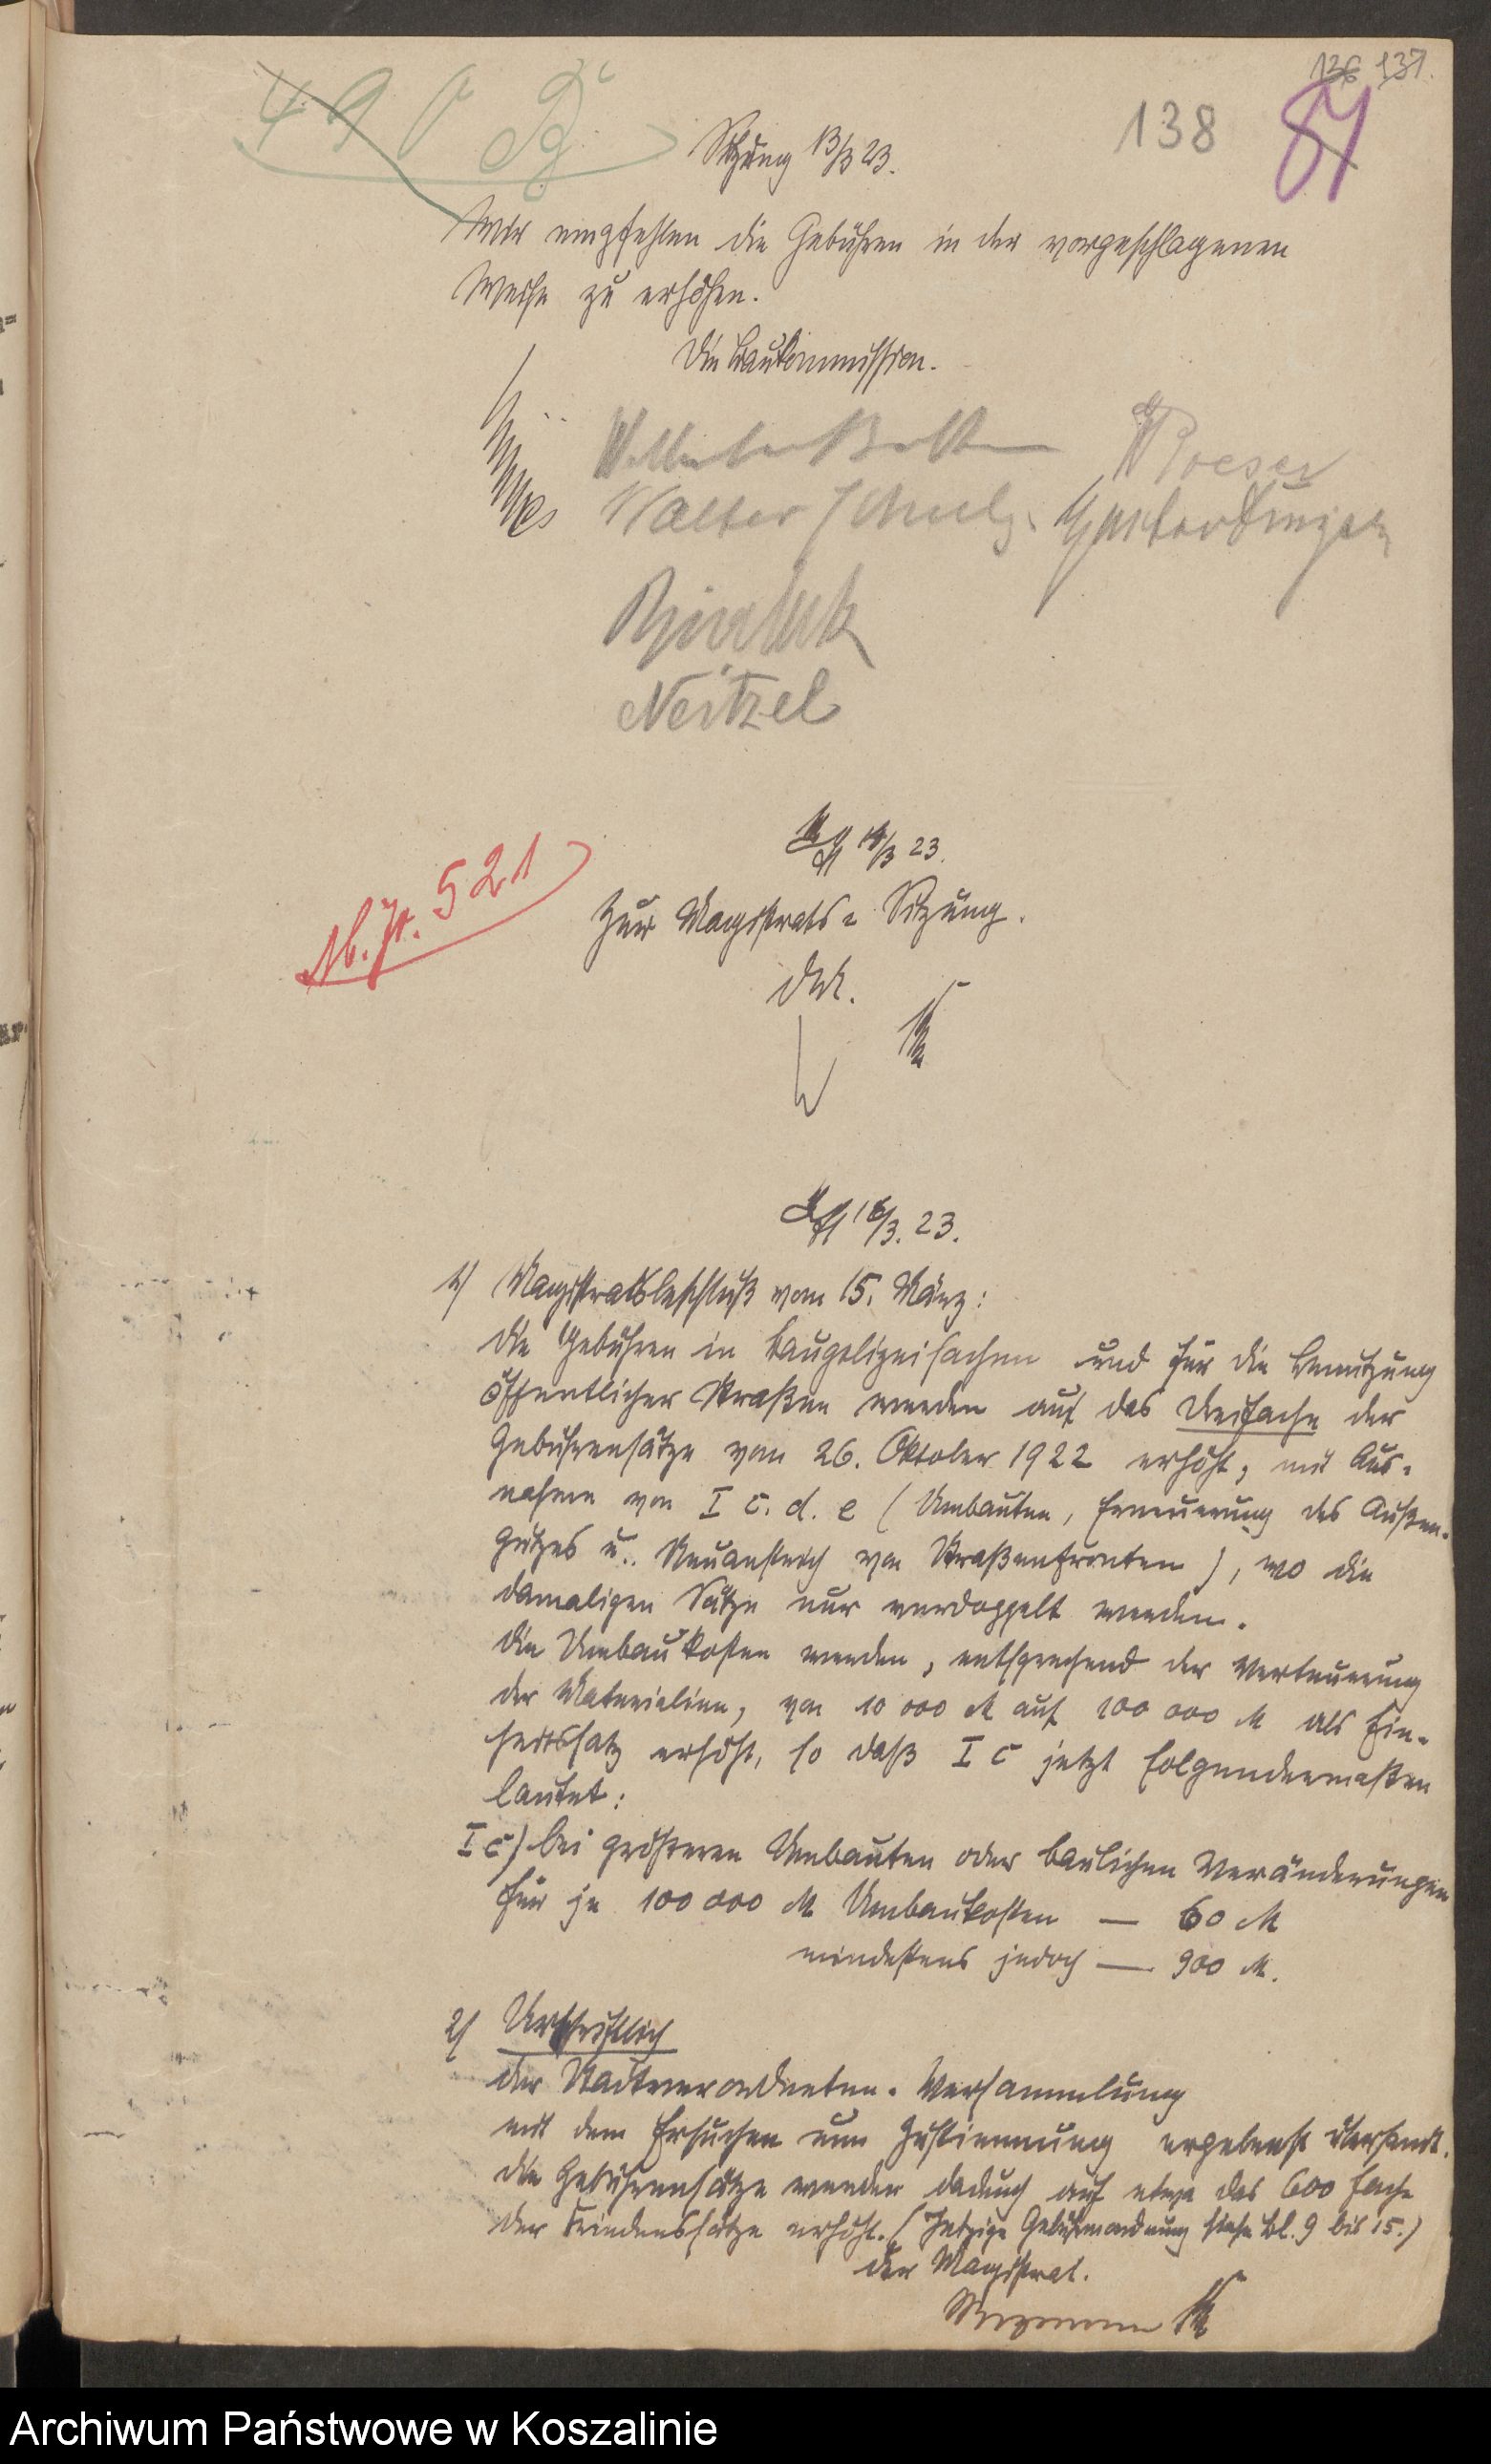 136 137.
138 81
490
Sitzung 13/3 23.
Wir empfehlen die Gebühren in der vorgeschlagenen
Weise zu erhöhen.
Die Baukommission.
Walter Schulz. Gustav
Neitzel
14/3 23.
521
Zur Magistrats-Sitzung.
16/3. 23.
1) Magistratsbeschluß vom 15. März:
Die Gebühren in Baupolizeisachen und für die Benutzung
öffentlicher Straßen werden auf das Dreifache der
Gebührensätze vom 26. Oktober 1922 erhöht, mit Aus-
nahme von I c. d. e (Umbauten, Erneuerung des Außen-
putzes u. Neuanstrich von Straßenfronten), wo die
damaligen Sätze nur verdoppelt werden.
Die Umbaukosten werden, entsprechend der Verteuerung
der Materialien, von 10 000 M auf 100 000 M als Ein-
heitssatz erhöht, so daß I c jetzt folgendermaßen
lautet:
I c) bei größeren Umbauten oder baulichen Veränderungen
für je 100 000 M Umbaukosten — 60 M
mindestens jedoch — 900 M.
2) Urschriftlich
der Stadtverordneten-Versammlung
mit dem Ersuchen um Zustimmung ergebenst übersandt.
Die Gebührensätze werden dadurch auf etwa das 600 fache
der Friedenssätze erhöht. (Jetzige Gebührenordnung siehe Bl. 9 bis 15.)
Der Magistrat.
Archiwum Państwowe w Koszalinie